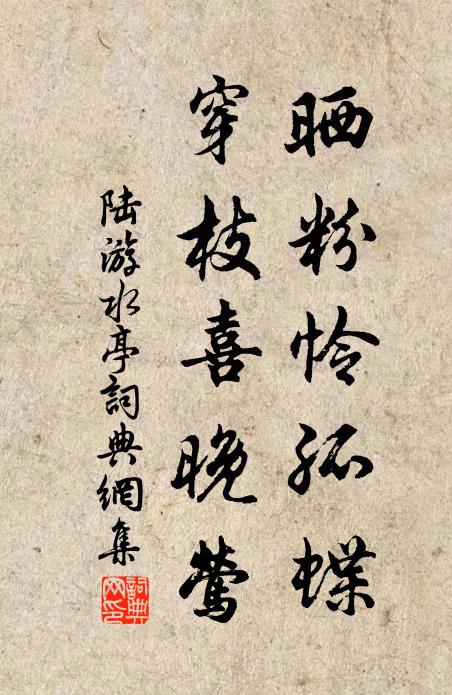 晒粉怜孤蝶
穿枝喜晚莺
陆游水亭詞典網集
詞典